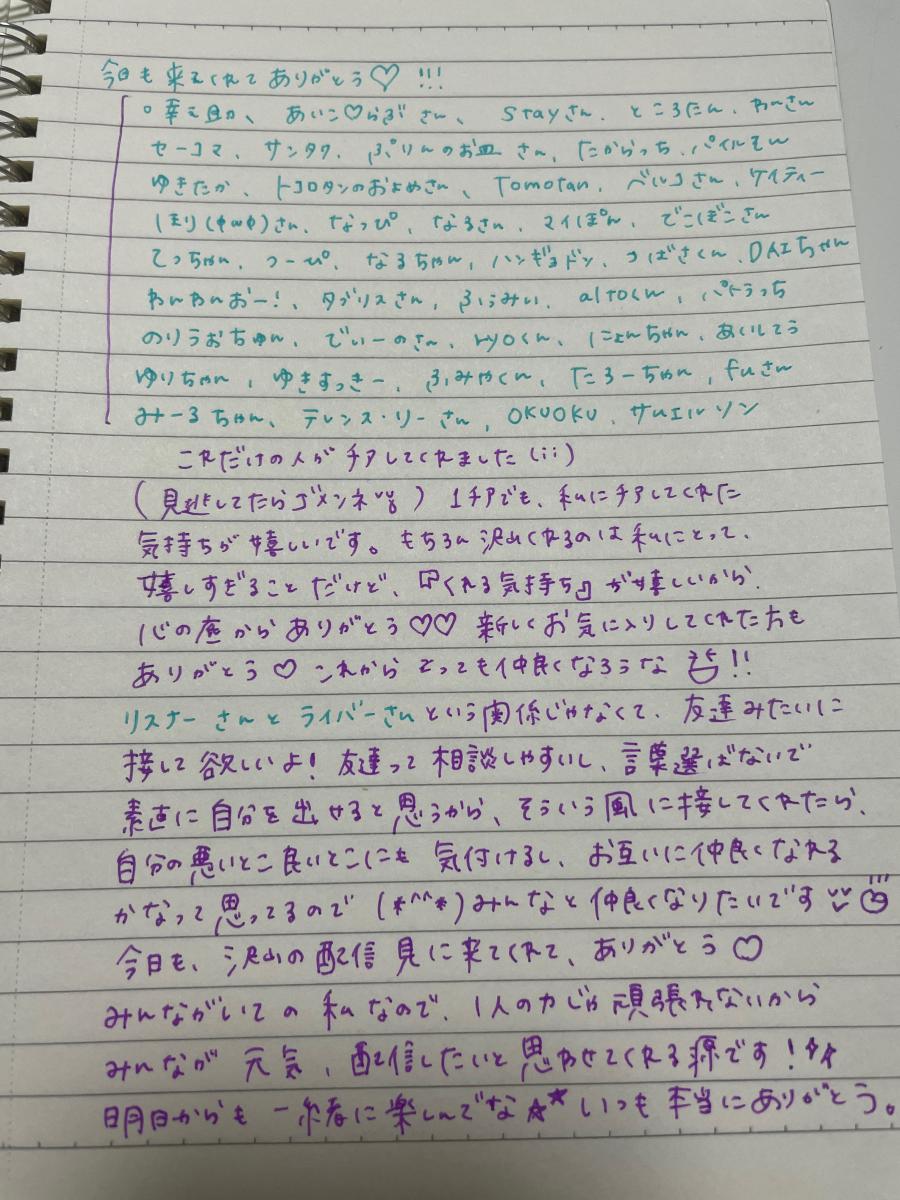 今日も来てくれてありがとう♡!!!
あいこ♡らぶさん、Stayさん、ところたん、わんさん
セーコマ、サンタク、ぷりんのお皿さん、たからっち、パイルもん
ゆきたか、トコロタンのおよめさん、Tomotan、ベルコさん、ケイティー
ほり(φωφ)さん、なっぴ、なるさん、マイぽん、でこぼこさん
てっちゃん、つーぴ、なるちゃん、ハンギョドン、つばさくん、DAIちゃん
わんわんおー!、タブリスさん、ふぅみぃ、altoくん、パトらっち
のりうおちゅん、でぃーのさん、ryoくん、にょんちゃん、あくしてう
ゆりちゃん、ゆきすっきー、ふみやくん、たろーちゃん、fuさん
みーるちゃん、テレンス・リーさん、OKUOKU、サムエルソン
これだけの人がチアしてくれました(;;)
(見逃してたらゴメンネ) 1チアでも、私にチアしてくれた
気持ちが嬉しいです。もちろん沢山くれるのは私にとって、
嬉しすぎることだけど、『くれる気持ち』が嬉しいから、
心の底からありがとう♡♡ 新しくお気に入りしてくれた方も
ありがとう♡ これからとっても仲良くなろうな!!
リスナーさんとライバーさんという関係じゃなくて、友達みたいに
接して欲しいよ!友達って相談しやすいし、言葉選ばないで
素直に自分を出せると思うから、そういう風に接してくれたら、
自分の悪いとこ良いとこにも気付けるし、お互いに仲良くなれる
かなって思ってるので(*^^*)みんなと仲良くなりたいです
今日も、沢山の配信見に来てくれて、ありがとう♡
みんながいての私なので、1人の力じゃ頑張れないから
みんなが元気、配信したいと思わせてくれる源です!☆☆
明日からも一緒に楽しんでな☆☆いつも本当にありがとう。